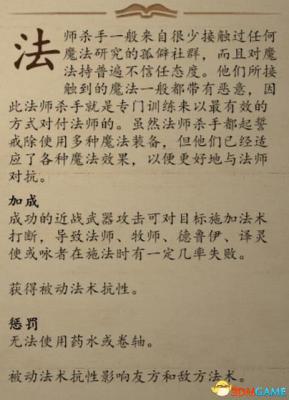 法师杀手一般来自很少接触过任何
魔法研究的孤僻社群，而且对魔
法持普遍不信任态度。他们所接
触到的魔法一般都带有恶意，因
此法师杀手就是专门训练来以最有效的
方式对付法师的。虽然法师杀手都起誓
戒除使用多种魔法装备，但他们已经适
应了各种魔法效果，以便更好地与法师
对抗。
加成
成功的近战武器攻击可对目标施加法术
打断，导致法师、牧师、德鲁伊、译灵
使或咏者在施法时有一定几率失败。
获得被动法术抗性。
惩罚
无法使用药水或卷轴。
被动法术抗性影响友方和敌方法术。
3DMGAME